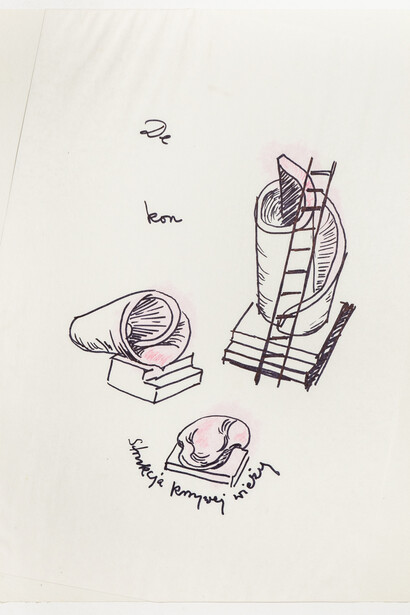 De
kon
Strukcja krzywej wieży